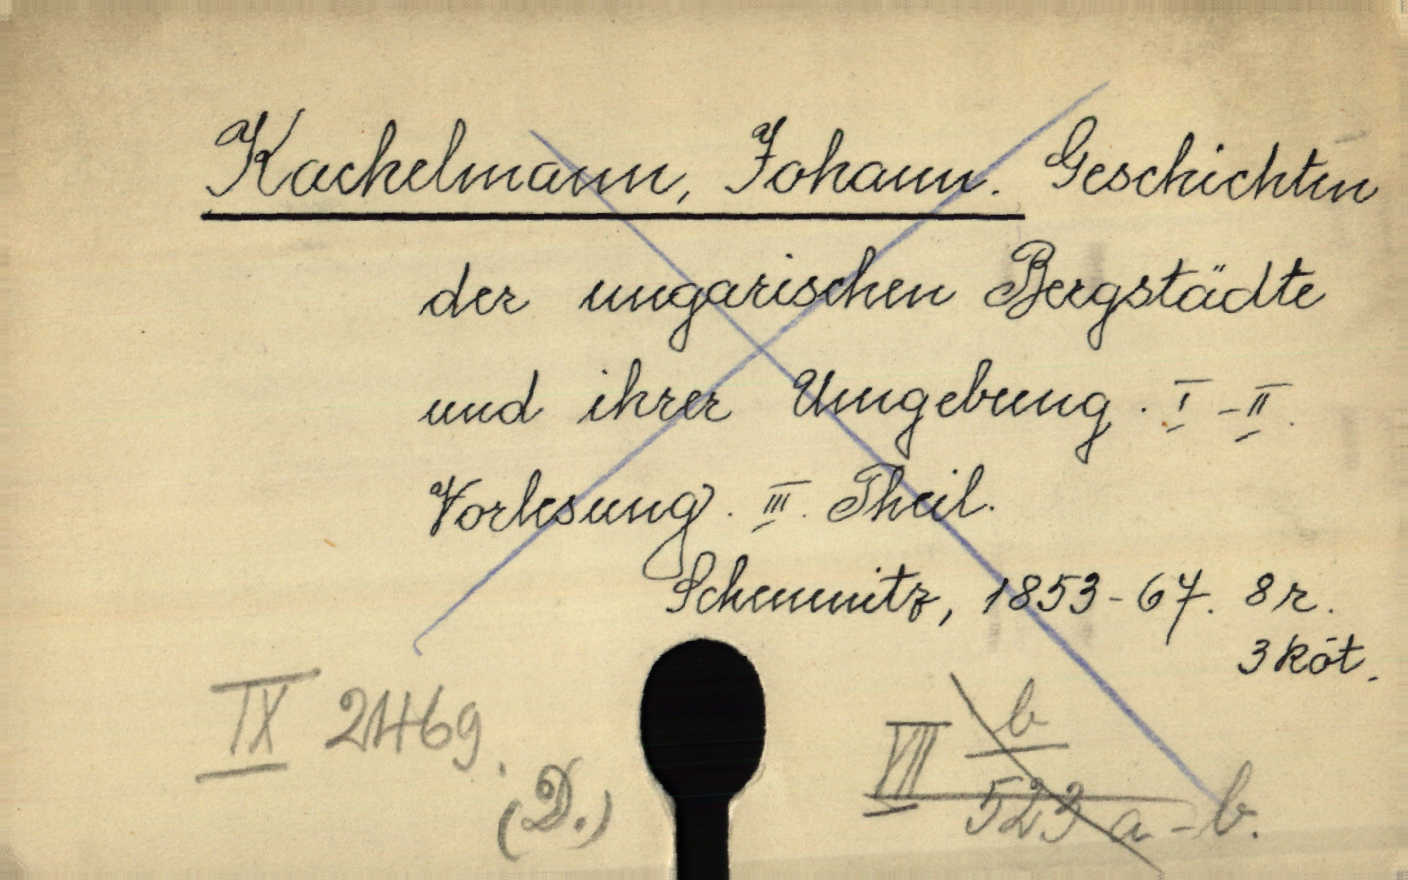 Kachelmann, Johann. Geschichten
der ungarischen Bergstädte
und ihrer Umgebung. I-II.
Vorlesung. III. Theil.
Schemnitz, 1853-67. 8r.
3 köt.
IX 2469.
(D.)
VII b
523 a-b.